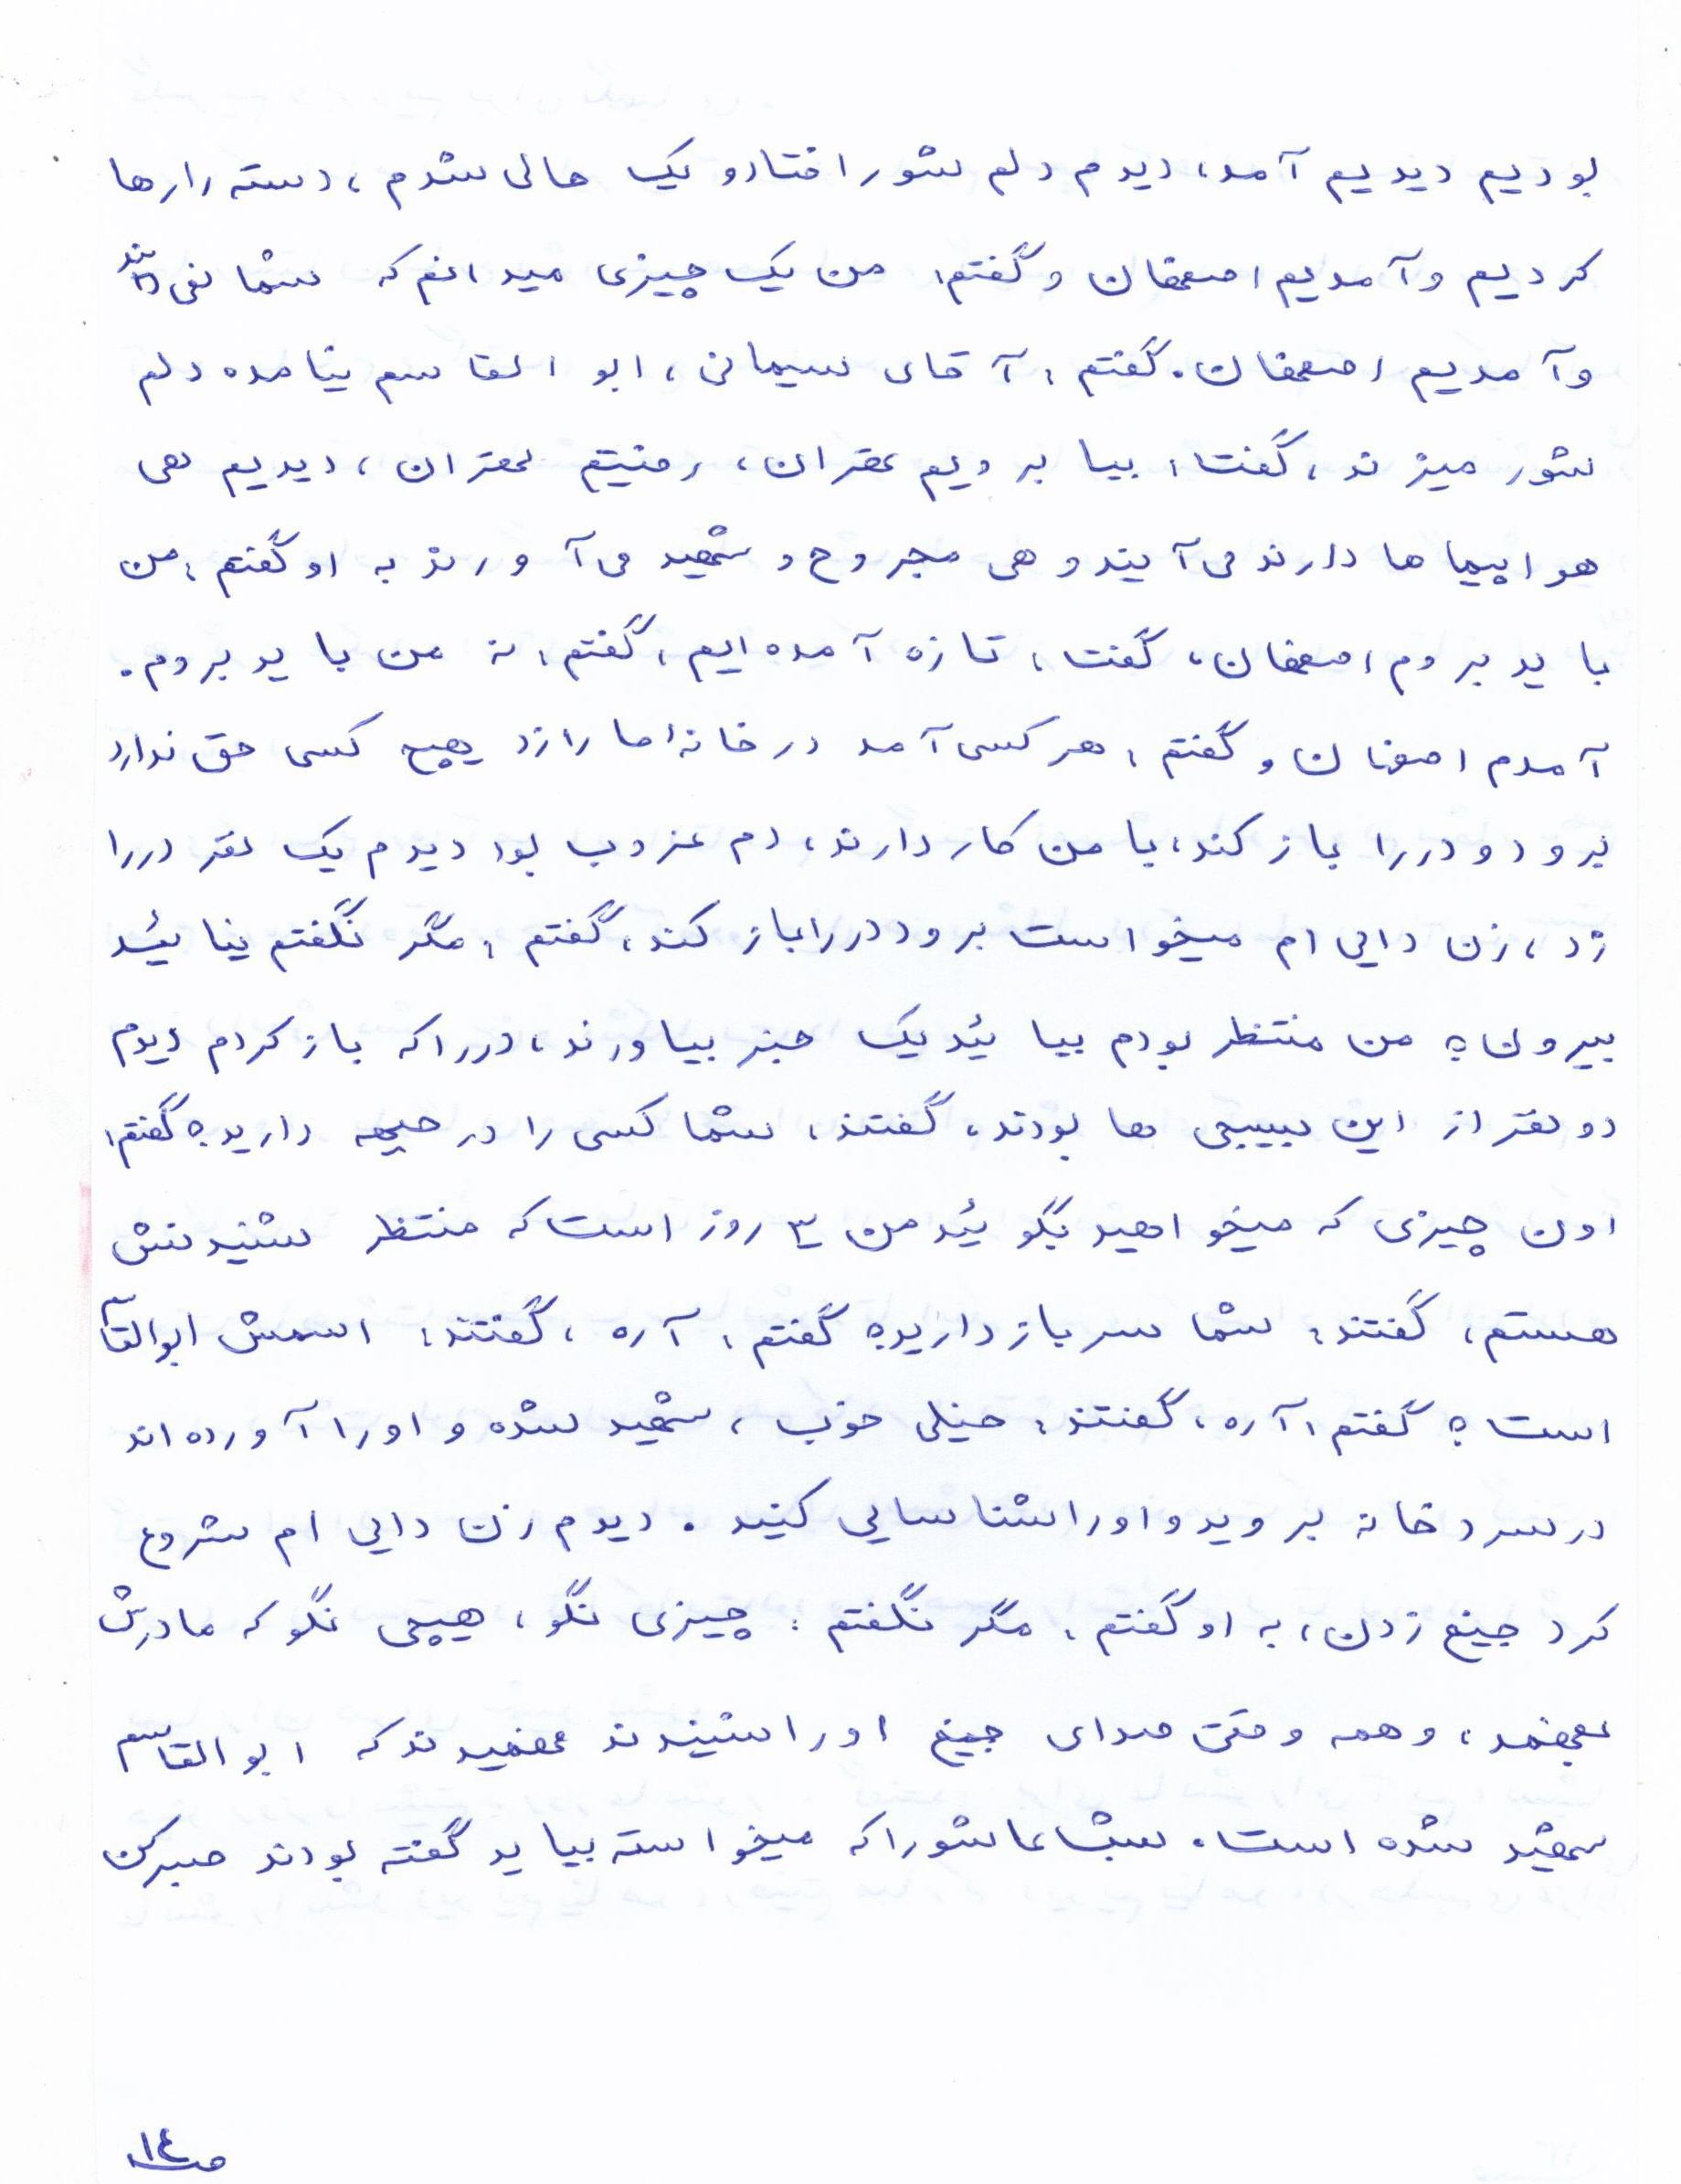 بودیم دیدیم آمد، دیدم دلم شور افتاد و یک حالی شدم، دسته را رها
کردیم و آمدیم اصفهان و گفتم: من یک چیزی میدانم که شما نمی دانید
و آمدیم اصفهان. گفتم: آقای سیمانی، ابوالقاسم نیامده دلم
شور میزند، گفت: بیا برویم تهران، رفتیم تهران، دیدیم هی
هواپیماها دارند می آیند و هی مجروح و شهید می آورند به او گفتم: من
باید بروم اصفهان، گفت: تازه آمده ایم، گفتم: نه من باید بروم.
آمدم اصفهان و گفتم: هر کسی آمد در خانۀ ما را زد هیچ کسی حق ندارد
برود و در را باز کند، با من کار دارند، دم غروب بود دیدم یک نفر در را
زد، زن دایی ام میخواست برود در را باز کند، گفتم: مگر نگفتم نیائید
بیرون؟ من منتظر بودم بیائید یک خبر بیاورند، در را که باز کردم دیدم
دو نفر از این بسیجی ها بودند، گفتند: شما کسی را در جبهه دارید؟ گفتم:
اون چیزی که میخواهید بگوئید من ۳ روز است که منتظر شنیدنش
هستم، گفتند: شما سرباز دارید؟ گفتم: آره، گفتند: اسمش ابوالقاسم
است؟ گفتم: آره، گفتند: خیلی خوب، شهید شده و او را آورده اند
در سردخانه بروید و او را شناسایی کنید. دیدم زن دایی ام شروع
کرد جیغ زدن، به او گفتم: مگر نگفتم: چیزی نگو، هیچی نگو که مادرش
نفهمد، و همه وقتی صدای جیغ او را شنیدند فهمیدند که ابوالقاسم
شهید شده است. شب عاشورا که میخواسته بیاید گفته بودند صبر کن
ص۱٤